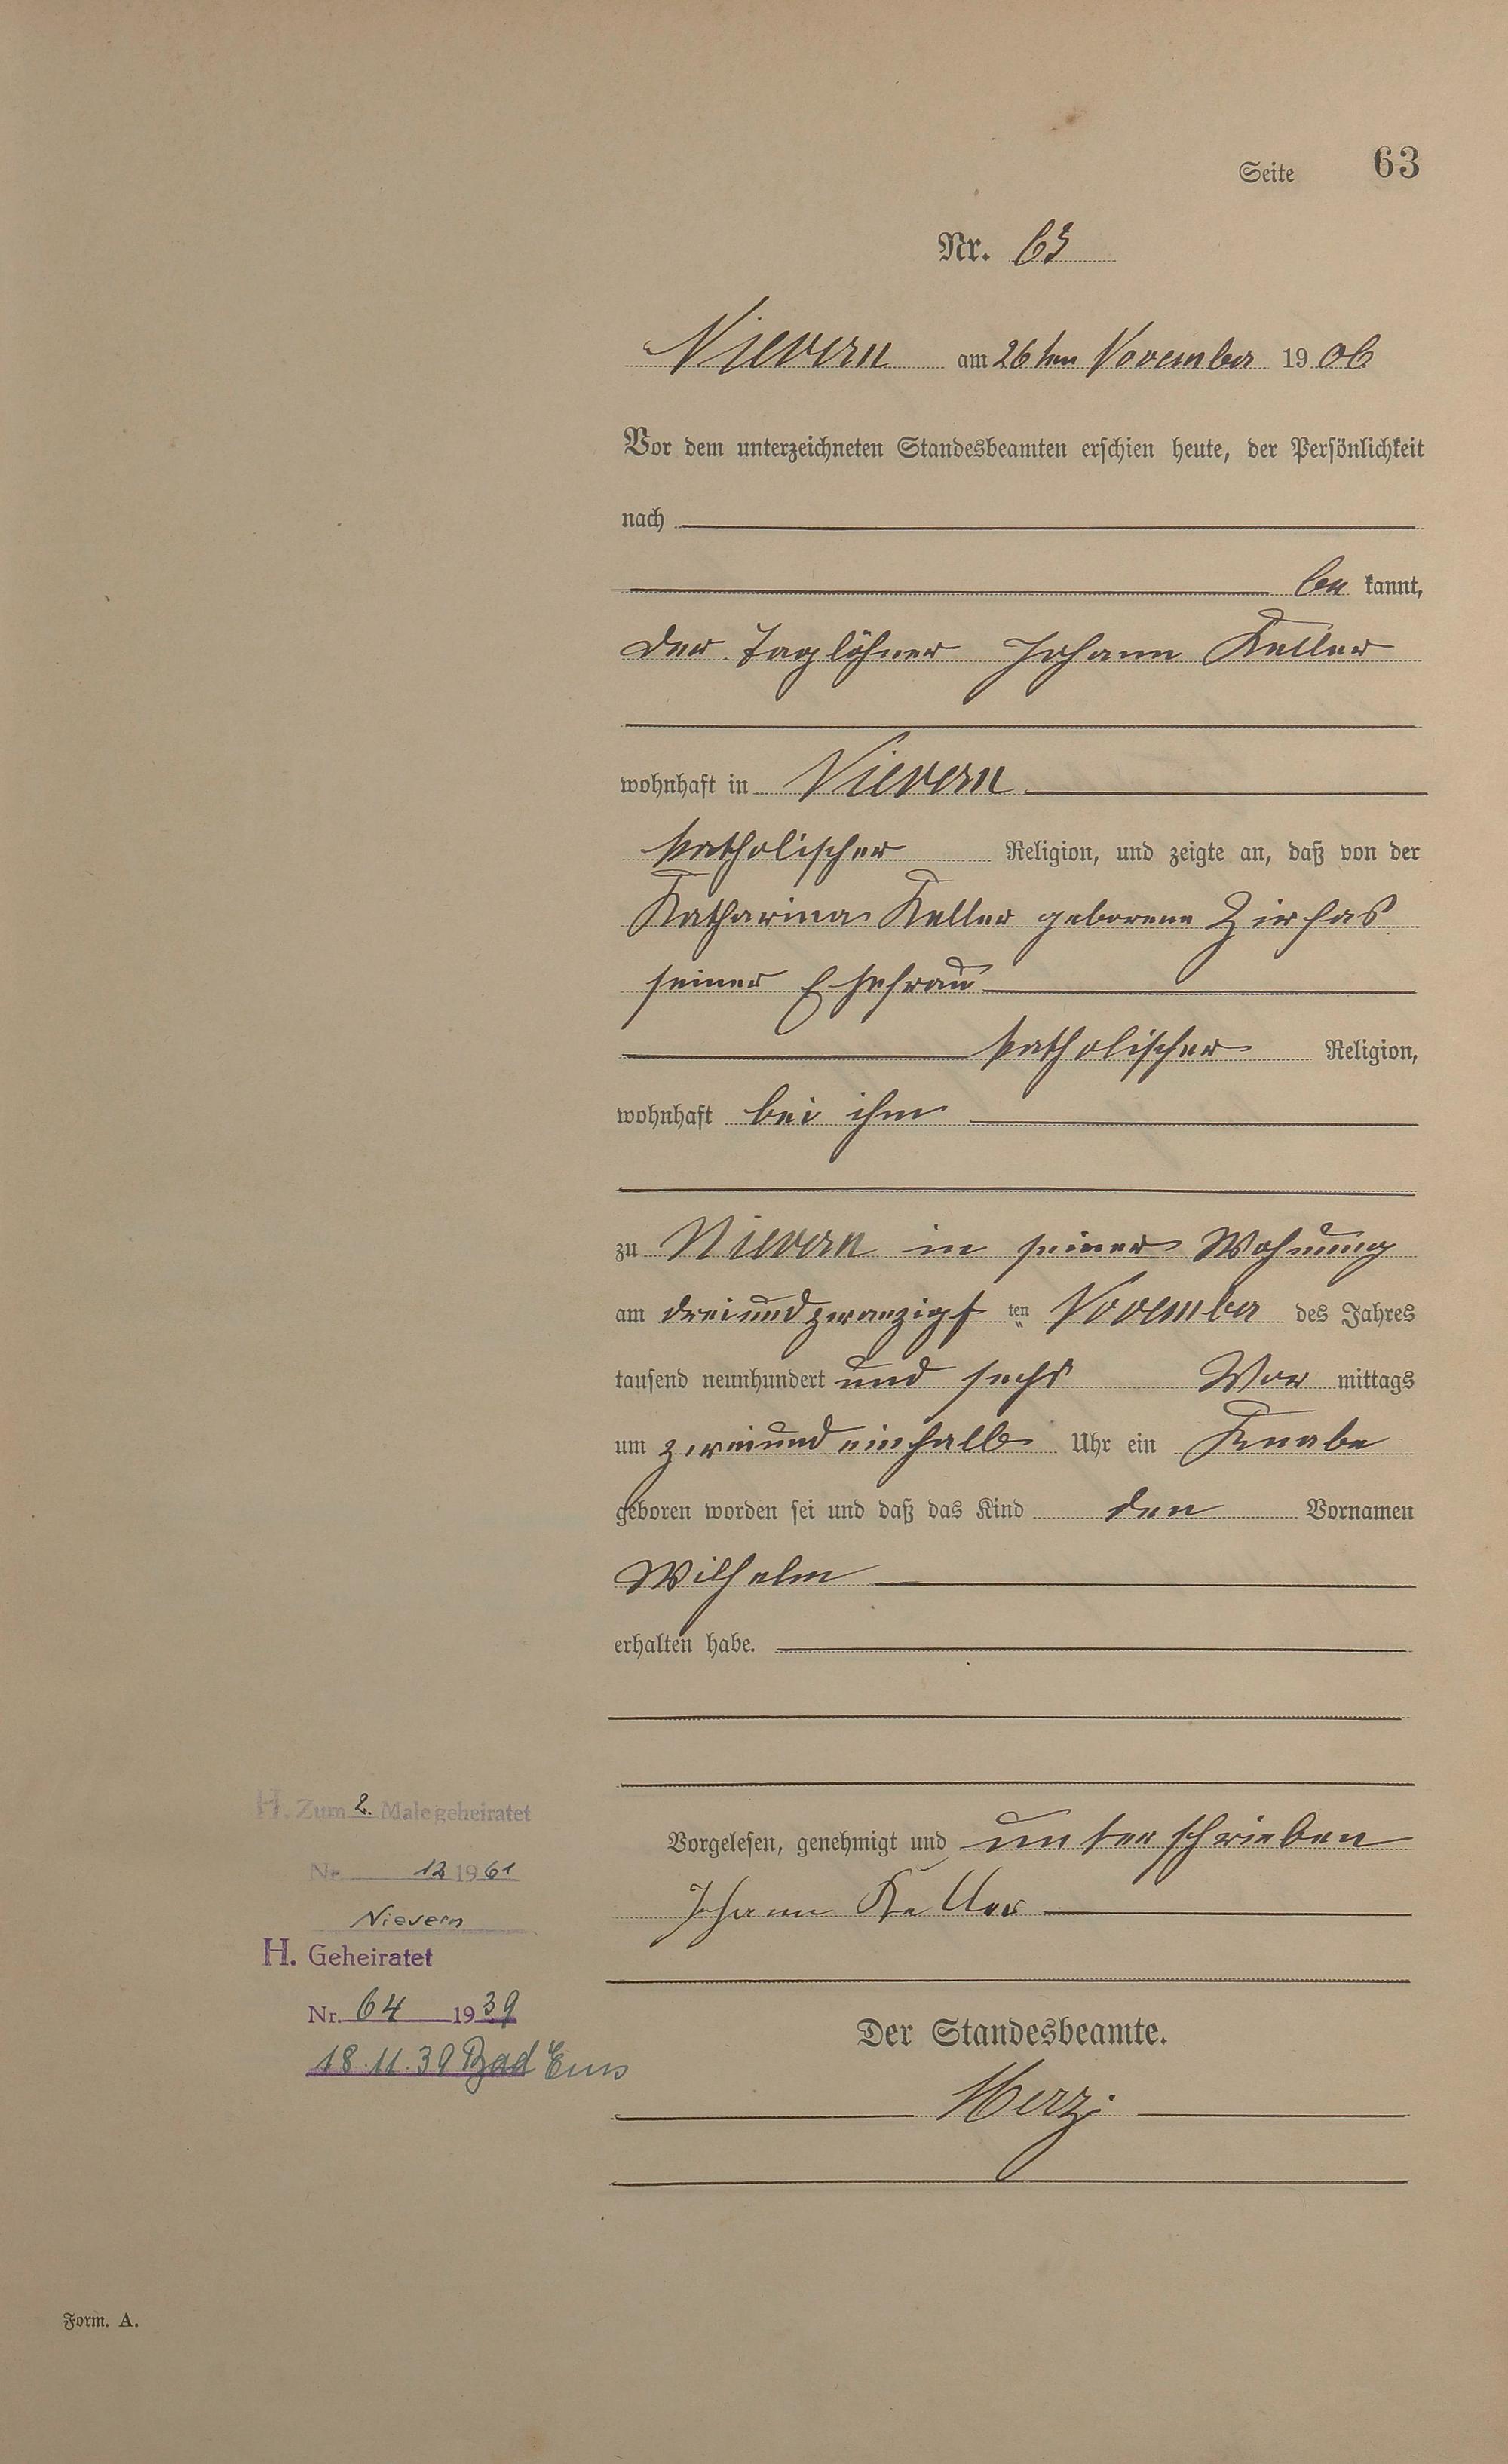 Seite 63
Nr. 63
Nievern am 26ten November 1906
Vor dem unterzeichneten Standesbeamten erschien heute, der Persönlichkeit
nach
be kannt,
der Taglöhner Johann Keller
wohnhaft in Nievern
katholischer Religion, und zeigte an, daß von der
Katharina Keller geborene Zirfas
seiner Ehefrau
katholischer Religion,
wohnhaft bei ihm
zu Nievern in seiner Wohnung
am dreiundzwanzigsten November des Jahres
tausend neunhundert und sechs Vor mittags
um zweiundeinhalb Uhr ein Knabe
geboren worden sei und daß das Kind den Vornamen
Wilhelm
erhalten habe.
Vorgelesen, genehmigt und unterschrieben
Johann Keller
Der Standesbeamte.
Merz
H. Zum 2. Male geheiratet
Nr. 12 1961
Nievern
H. Geheiratet
Nr. 64 1939
18.11.39 Bad Ems
Form. A.